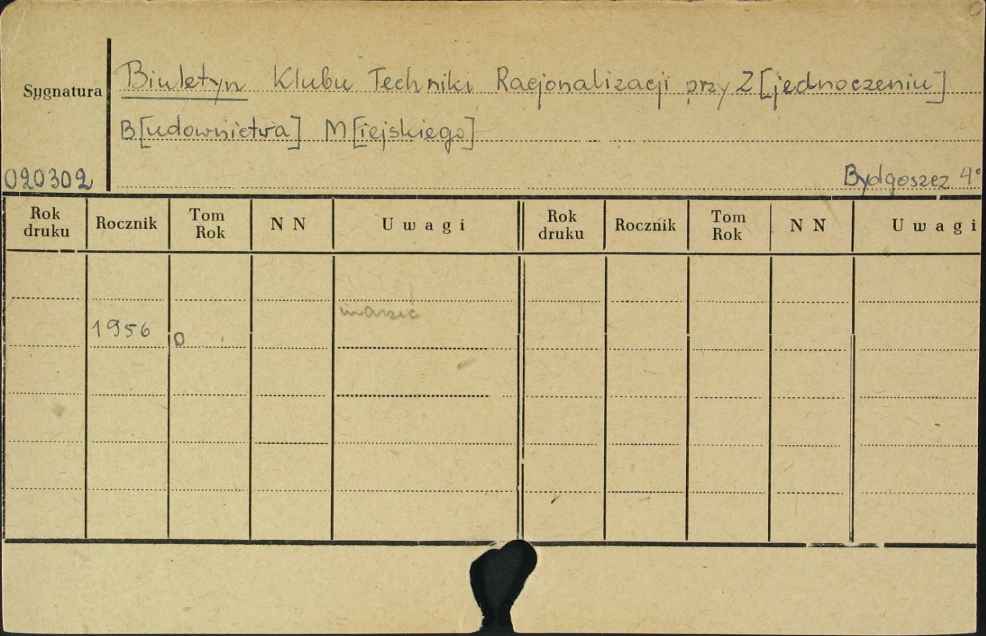 Sygnatura
Biuletyn Klubu Techniki Racjonalizacji przy Z[jednoczeniu]
B[udownictwa] M[iejskiego]
020302
Bydgoszcz 4°
Rok druku Rocznik Tom Rok N N Uwagi Rok druku Rocznik Tom Rok N N Uwagi
1956 0